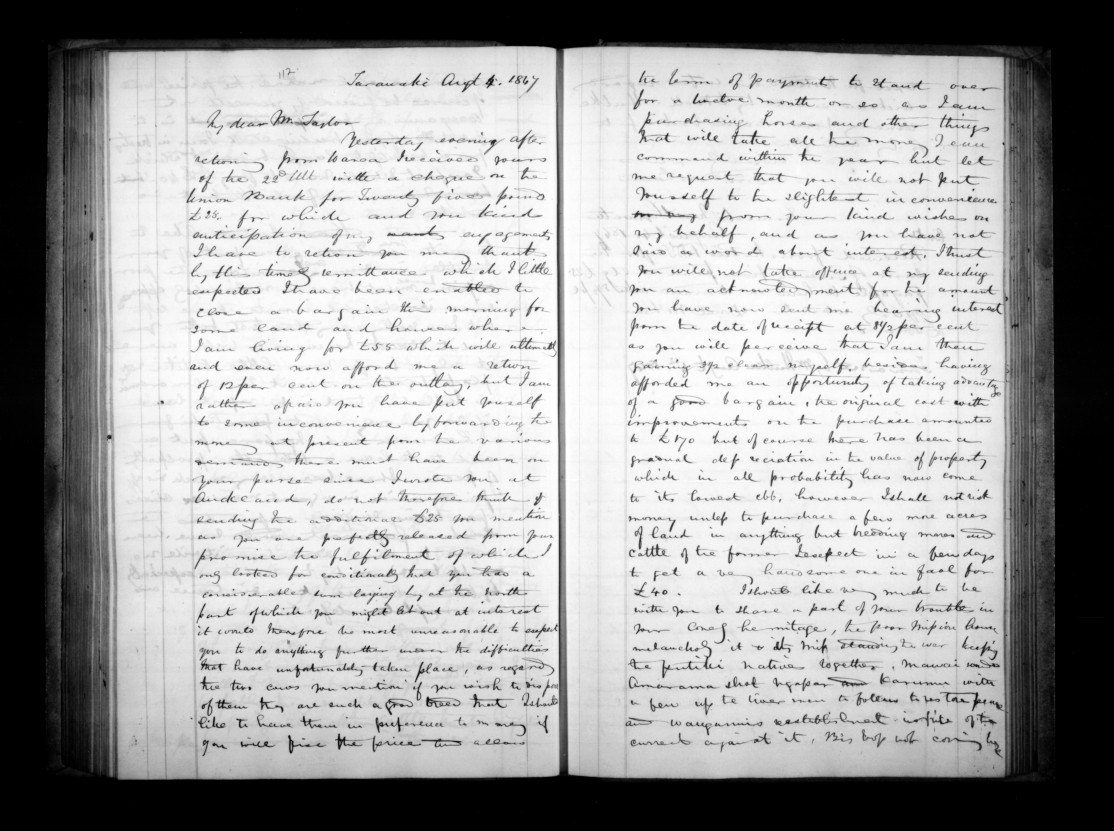 112
Taranaki Augt 4. 1847
My dear Mr Taylor
Yesterday evening after
retiong from Warea I received yours
of the 22d Ult with a cheque on the
Union Bank for Twenty five pound
£25. for which and you kind
anticipation of my wants engagements
I have to return you my thanks
by this timely remittance which I little
expected I have been enabled to
close a bargain this morning for
some land and house where
I am living for £55 which will ultimately
and even now afford me a return
of 12 per cent on the outlay, but I am
rather afraid you have put yourself
to some inconvenience by forwarding the
money at present from the various
demands there must have been on
your purse since I wrote you at
Auckland, do not therefore think of
sending the additional £25 you mention
as you are perfectly released from your
promise the fulfilment of which I
only looked for conditionally that you had a
considerable sum laying by at the North
part of which you might let out at interest
it would therefore be most unreasonable to expect
you to do anything further under the difficulties
that have unfortunately taken place, as regards
the two cows you mention if you wish to dispose
of them they are such a good breed that I should
like to have them in preference to money if
you will fix the price and allow
the term of payment to stand over
for a twelve month or so as I am
purchasing horses and other things
that will take all the money I can
command within the year but let
me request that you will not put
yourself to the slightest inconvenience
from your kind wishes on
my behalf, and as you have not
said a word about interest, I trust
you will not take offence at my sending
you an acknowledgment for the amount
you have now sent me bearing interest
from the date of receipt at 8½ per cent
as you will perceive that I am then
gaining 3½ clear myself, besides having
afforded me an opportunity of taking advantage
of a good bargain, the original cost with
improvements on the purchase amounted
to £170 but of course there has been a
gradual depreciation in the value of property
which in all probability has now come
to its lowest ebb, however I shall not risk
money unless to purchase a few more acres
of land in anything but breeding mares and
cattle of the former I expect in a few days
to get a very handsome one in foal for
£40. I should like very much to be
with you to share a part of your troubles in
your lonely hermitage, the poor Mission house
melancholy it & its Miss standing to war keeping
the pertiki natives together, Mawai and
Anarama shot Ngapar and Karumu with
a few up the river men to follow to restore peace
and Waugannis establishment in spite of the
current against it, Bishop not coming by